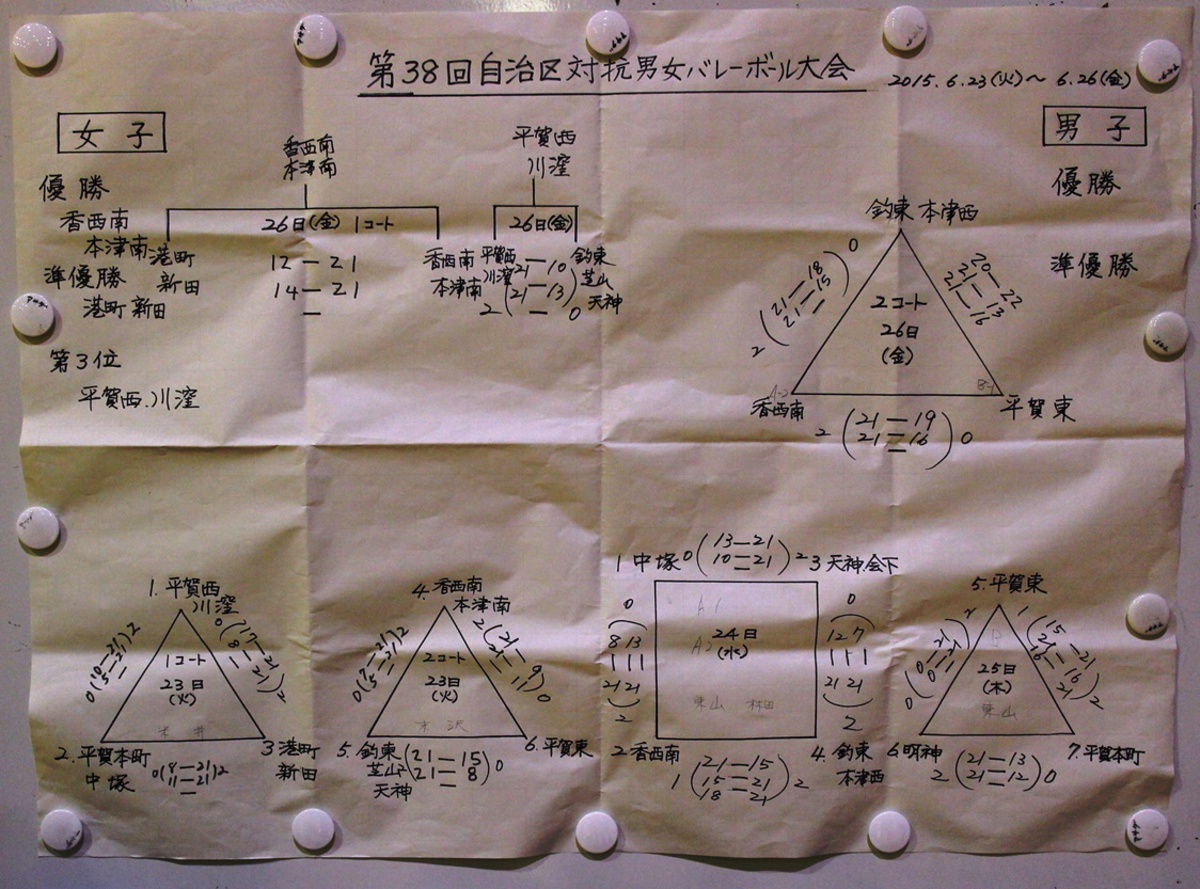 第38回自治区対抗男女バレーボール大会
2015.6.23(火)～6.26(金)
女子
優勝
香西南
本津南
準優勝
港町 新田
第3位
平賀西.川窪
香西南
本津南
26日(金) 1コート
港町
新田
12 — 21
14 — 21
—
香西南
本津南
平賀西
川窪
26日(金)
平賀西
川窪
21 — 10
2 (21 — 13) 0
—
釣東
芝山
天神
男子
優勝
準優勝
釣東 本津西
2コート
26日
(金)
0
21—18
21—15
—
2
20—22
21—13
21—16
A-2
B-1
香西南
平賀東
2 (21 — 19
21 — 16) 0
—
1.平賀西
川窪
1コート
23日
(火)
2.平賀本町
中塚
3 港町
新田
0(8—21)2
11—21
—
4.香西南
本津南
2コート
23日
(火)
5.釣東
芝山
天神
6.平賀東
2(21 — 15
21 — 8)0
—
1 中塚
0(13—21
10—21)2
—
3 天神.会下
24日
(水)
A1
A2
東山 林田
0
8 13
21 21
2
0
12 7
21 21
2
2 香西南
4.釣東
本津西
1(21—15
15—21
18—21)2
5.平賀東
25日
(木)
東山
6明神
7.平賀本町
2(21—13
21—12)0
—